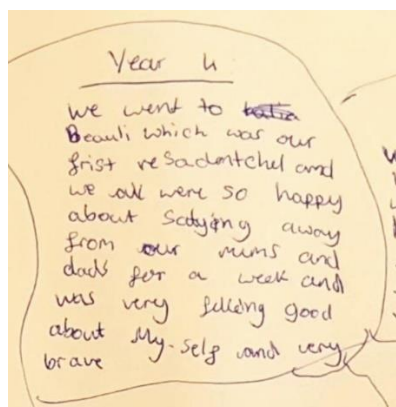 Year 4
we went to
Beauli which was our
frist resadentchel and
we all were so happy
about satying away
from our mums and
dads for a week and
was very felling good
about My-self and very
brave